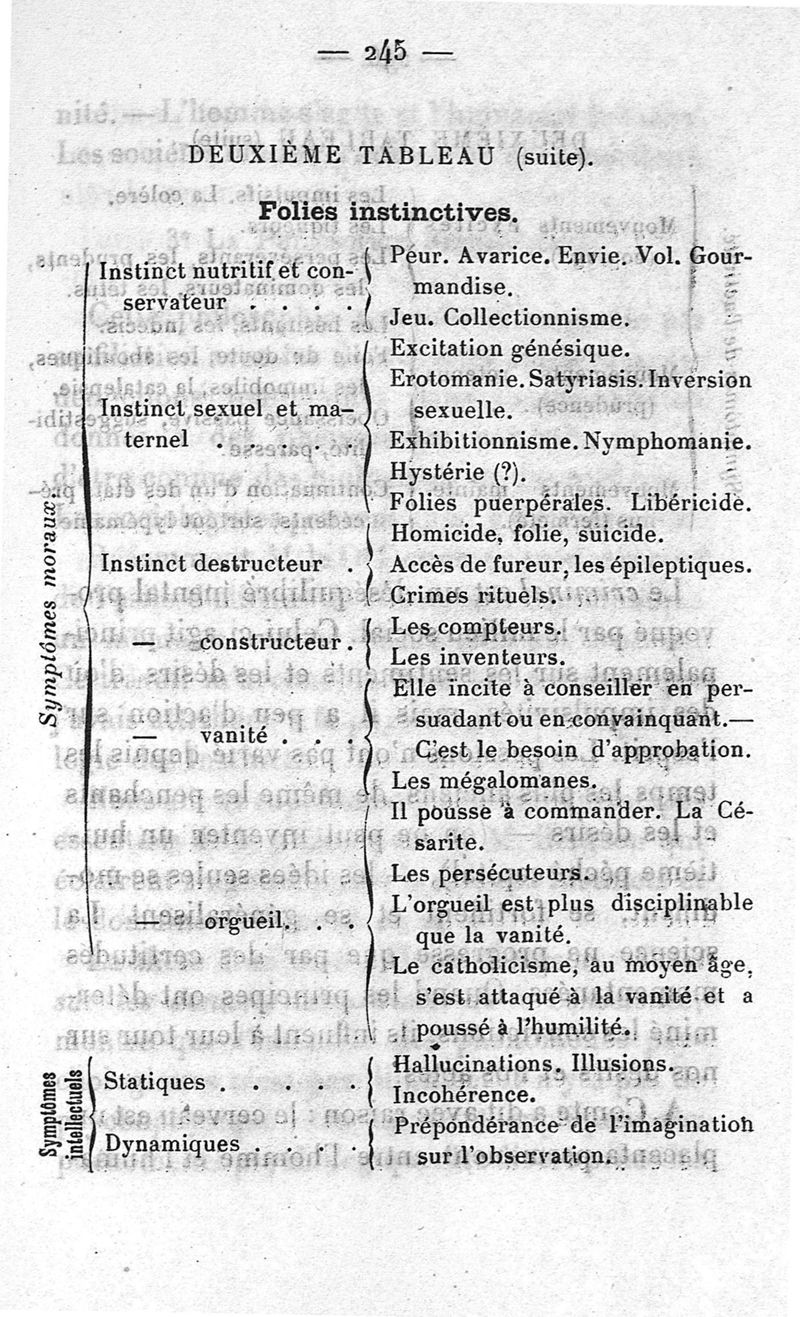 — 245 —
DEUXIÈME TABLEAU (suite).
Folies instinctives.
Symptômes moraux
Instinct nutritif et con-
servateur . . . .
Peur. Avarice. Envie. Vol. Gour-
mandise.
Jeu. Collectionnisme.
Instinct sexuel et ma-
ternel . . . . .
Excitation génésique.
Erotomanie. Satyriasis. Inversion
sexuelle.
Exhibitionnisme. Nymphomanie.
Hystérie (?).
Folies puerpérales. Libéricide.
Instinct destructeur .
Homicide, folie, suicide.
Accès de fureur, les épileptiques.
Crimes rituels.
— constructeur .
Les compteurs.
Les inventeurs.
— vanité . . .
Elle incite à conseiller en per-
suadant ou en convainquant.—
C'est le besoin d'approbation.
Les mégalomanes.
— orgueil. . .
Il pousse à commander. La Cé-
sarite.
Les persécuteurs.
L'orgueil est plus disciplinable
que la vanité.
Le catholicisme, au moyen âge,
s'est attaqué à la vanité et a
poussé à l'humilité.
Symptômes
intellectuels
Statiques . . . . .
Hallucinations. Illusions.
Incohérence.
Dynamiques . . . .
Prépondérance de l'imagination
sur l'observation.